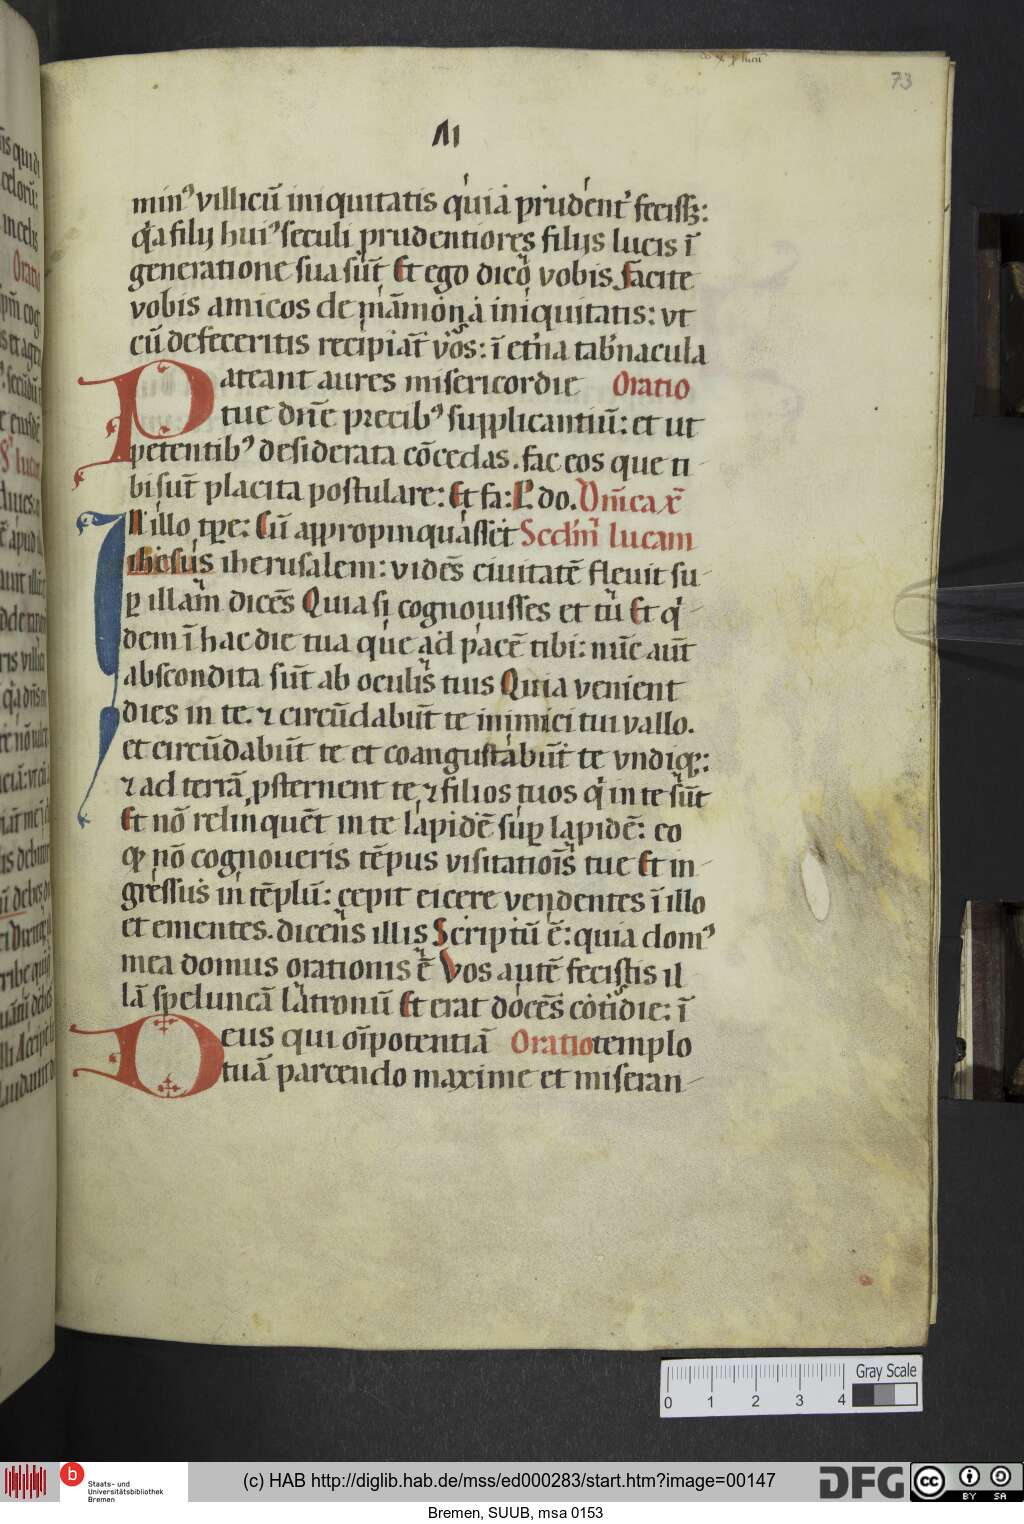 73
VI
minꝰ villicū iniquitatis quia prudent᷑ fecissꝫ:
q̇a filij huiꝰ seculi prudentiores filijs lucis ī
generatione sua sūt Et ego dico vobis facite
vobis amicos de māmona iniquitatis: vt
cū defeceritis recipiāt vos: ī et᷑na tab᷑nacula
Pateant aures misericordie Oratio
tue dn̄e precibꝰ supplicantiū: et ut
petentibꝰ desiderata cōcedas. fac eos que ti
bi sūt placita postulare: Et fa: P. do. Dn̄ica x̄
In illo tꝑe: Cū appropinquasset Scd̄m lucam
ihesus iherusalem: vidēs ciuitatē fleuit su
ꝑ illam dicēs Quia si cognouisses et tu Et q̇
dem ī hac die tua que ad pacē tibi: nūc aūt
abscondita sūt ab oculis tuis Quia venient
dies in te. ⁊ circūdabūt te inimici tui vallo.
et circūdabūt te et coangustabūt te vndiqꝫ:
⁊ ad terrā ꝓsternent te ⁊ filios tuos q̇ in te sūt
Et nō relinquēt in te lapidē suꝑ lapidē: eo
qꝫ nō cognoueris tēpus visitatiōis tue Et in
gressus in tēplū: cepit eicere vendentes ī illo
et ementes. dicens illis Scriptū ē: quia domꝰ
mea domus orationis ē Vos autē fecistis il
lā speluncā latronū Et erat docēs cotidie: ī
Deus qui oīpotentiā Oratio templo
tuā parcendo maxime et miseran
Gray Scale
0 1 2 3 4
b Staats- und
Universitätsbibliothek
Bremen
(c) HAB http://diglib.hab.de/mss/ed000283/start.htm?image=00147
DFG
cc BY SA
Bremen, SUUB, msa 0153